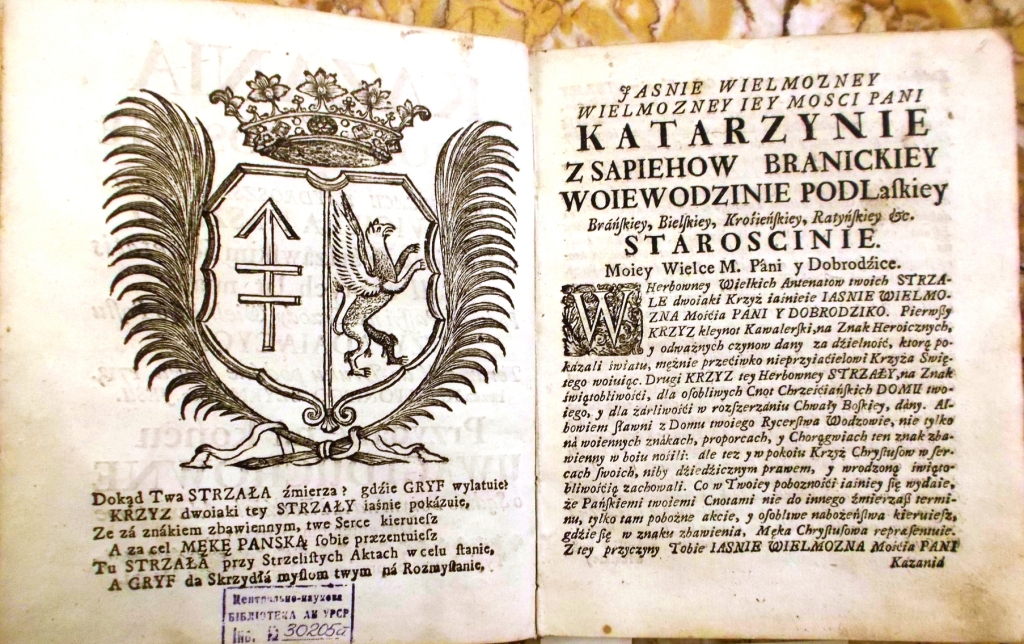 Dokąd Twa STRZAŁA źmierza? gdzie GRYF wylatuie?
KRZYZ dwoiaki tey STRZAŁY iaśnie pokázuie,
Ze zá znákiem zbawiennym, twe Serce kieruiesz
A za cel MĘKĘ PANSKĄ sobie præzentuiesz
Tu STRZAŁA przy Strzelistych Aktach w celu stanie,
A GRYF da Skrzydłá myslom twym ná Rozmyslanie,
Центрально-наукова
БІБЛІОТЕКА АН УРСР
Інв. № 30205а
JASNIE WIELMOZNEY
WIELMOZNEY IEY MOSCI PANI
KATARZYNIE
Z SAPIEHOW BRANICKIEY
WOIEWODZINIE PODLaskiey
Bráńskiey, Bielskiey, Krosieńskiey, Ratyńskiey &c.
STAROSCINIE.
Moiey Wielce M. Páni y Dobrodźice.
W Herbowney Wielkich Antenatow twoich STRZA-
LE dwoiaki Krzyż iaśnieie IASNIE WIELMO-
ZNA Mościa PANI Y DOBRODZIKO. Pierwszy
KRZYZ kleynot Kawalerski, na Znak Heroicznych,
y odważnych czynow dany za dzielność, ktorą po-
kazáli światu, mężnie przećiwko nieprzyiaćielowi Krzyża Swię-
tego woiuiąc. Drugi KRZYZ tey Herbowney STRZAŁY, na Znak
świątobliwośći, dla osobliwych Cnot Chrześćiańskich DOMU two-
iego, y dla żarliwośći w rozszerzániu Chwały Boskiey, dány. Al-
bowiem sławni z Domu twoiego Rycerstwa Wodzowie, nie tylko
ná woiennych znákach, proporcach, y Chorągwiach ten znak zba-
wienny w boiu nośili: ale tez y w pokoiu Krzyż Chrystusow w ser-
cach swoich, niby dźiedźicznym prawem, y wrodzoną świąto-
bliwośćią zachowali. Co w Twoiey pobożnośći iaśniey się wydaie,
że Pańskiemi twoiemi Cnotami nie do innego źmierzasz termi-
nu, tylko tam pobożne akcie, y osobliwe nabożeństwa kieruiesz,
gdzie się w znaku zbawienia, Męka Chrystusowa repræsentuie.
Z tey przyczyny Tobie IASNIE WIELMOZNA Mościa PANI
Kazania